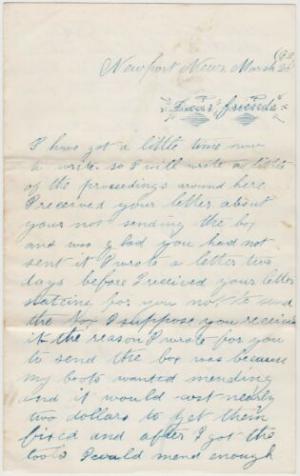 Newport News March 20
Dear friends
I have got a little time now
to write so I will write a little
of the proceedings around here
I received your letter about
your not sending the box
and was glad you had not
sent it I wrote a letter two
days before I received your letter
stateing for you not to send
the box I suppose you received
it the reason I wrote for you
to send the box was because
my boots wanted mending
and it would cost nearly
two dollars to get them
fixed and after I got the
tools I could mend enough